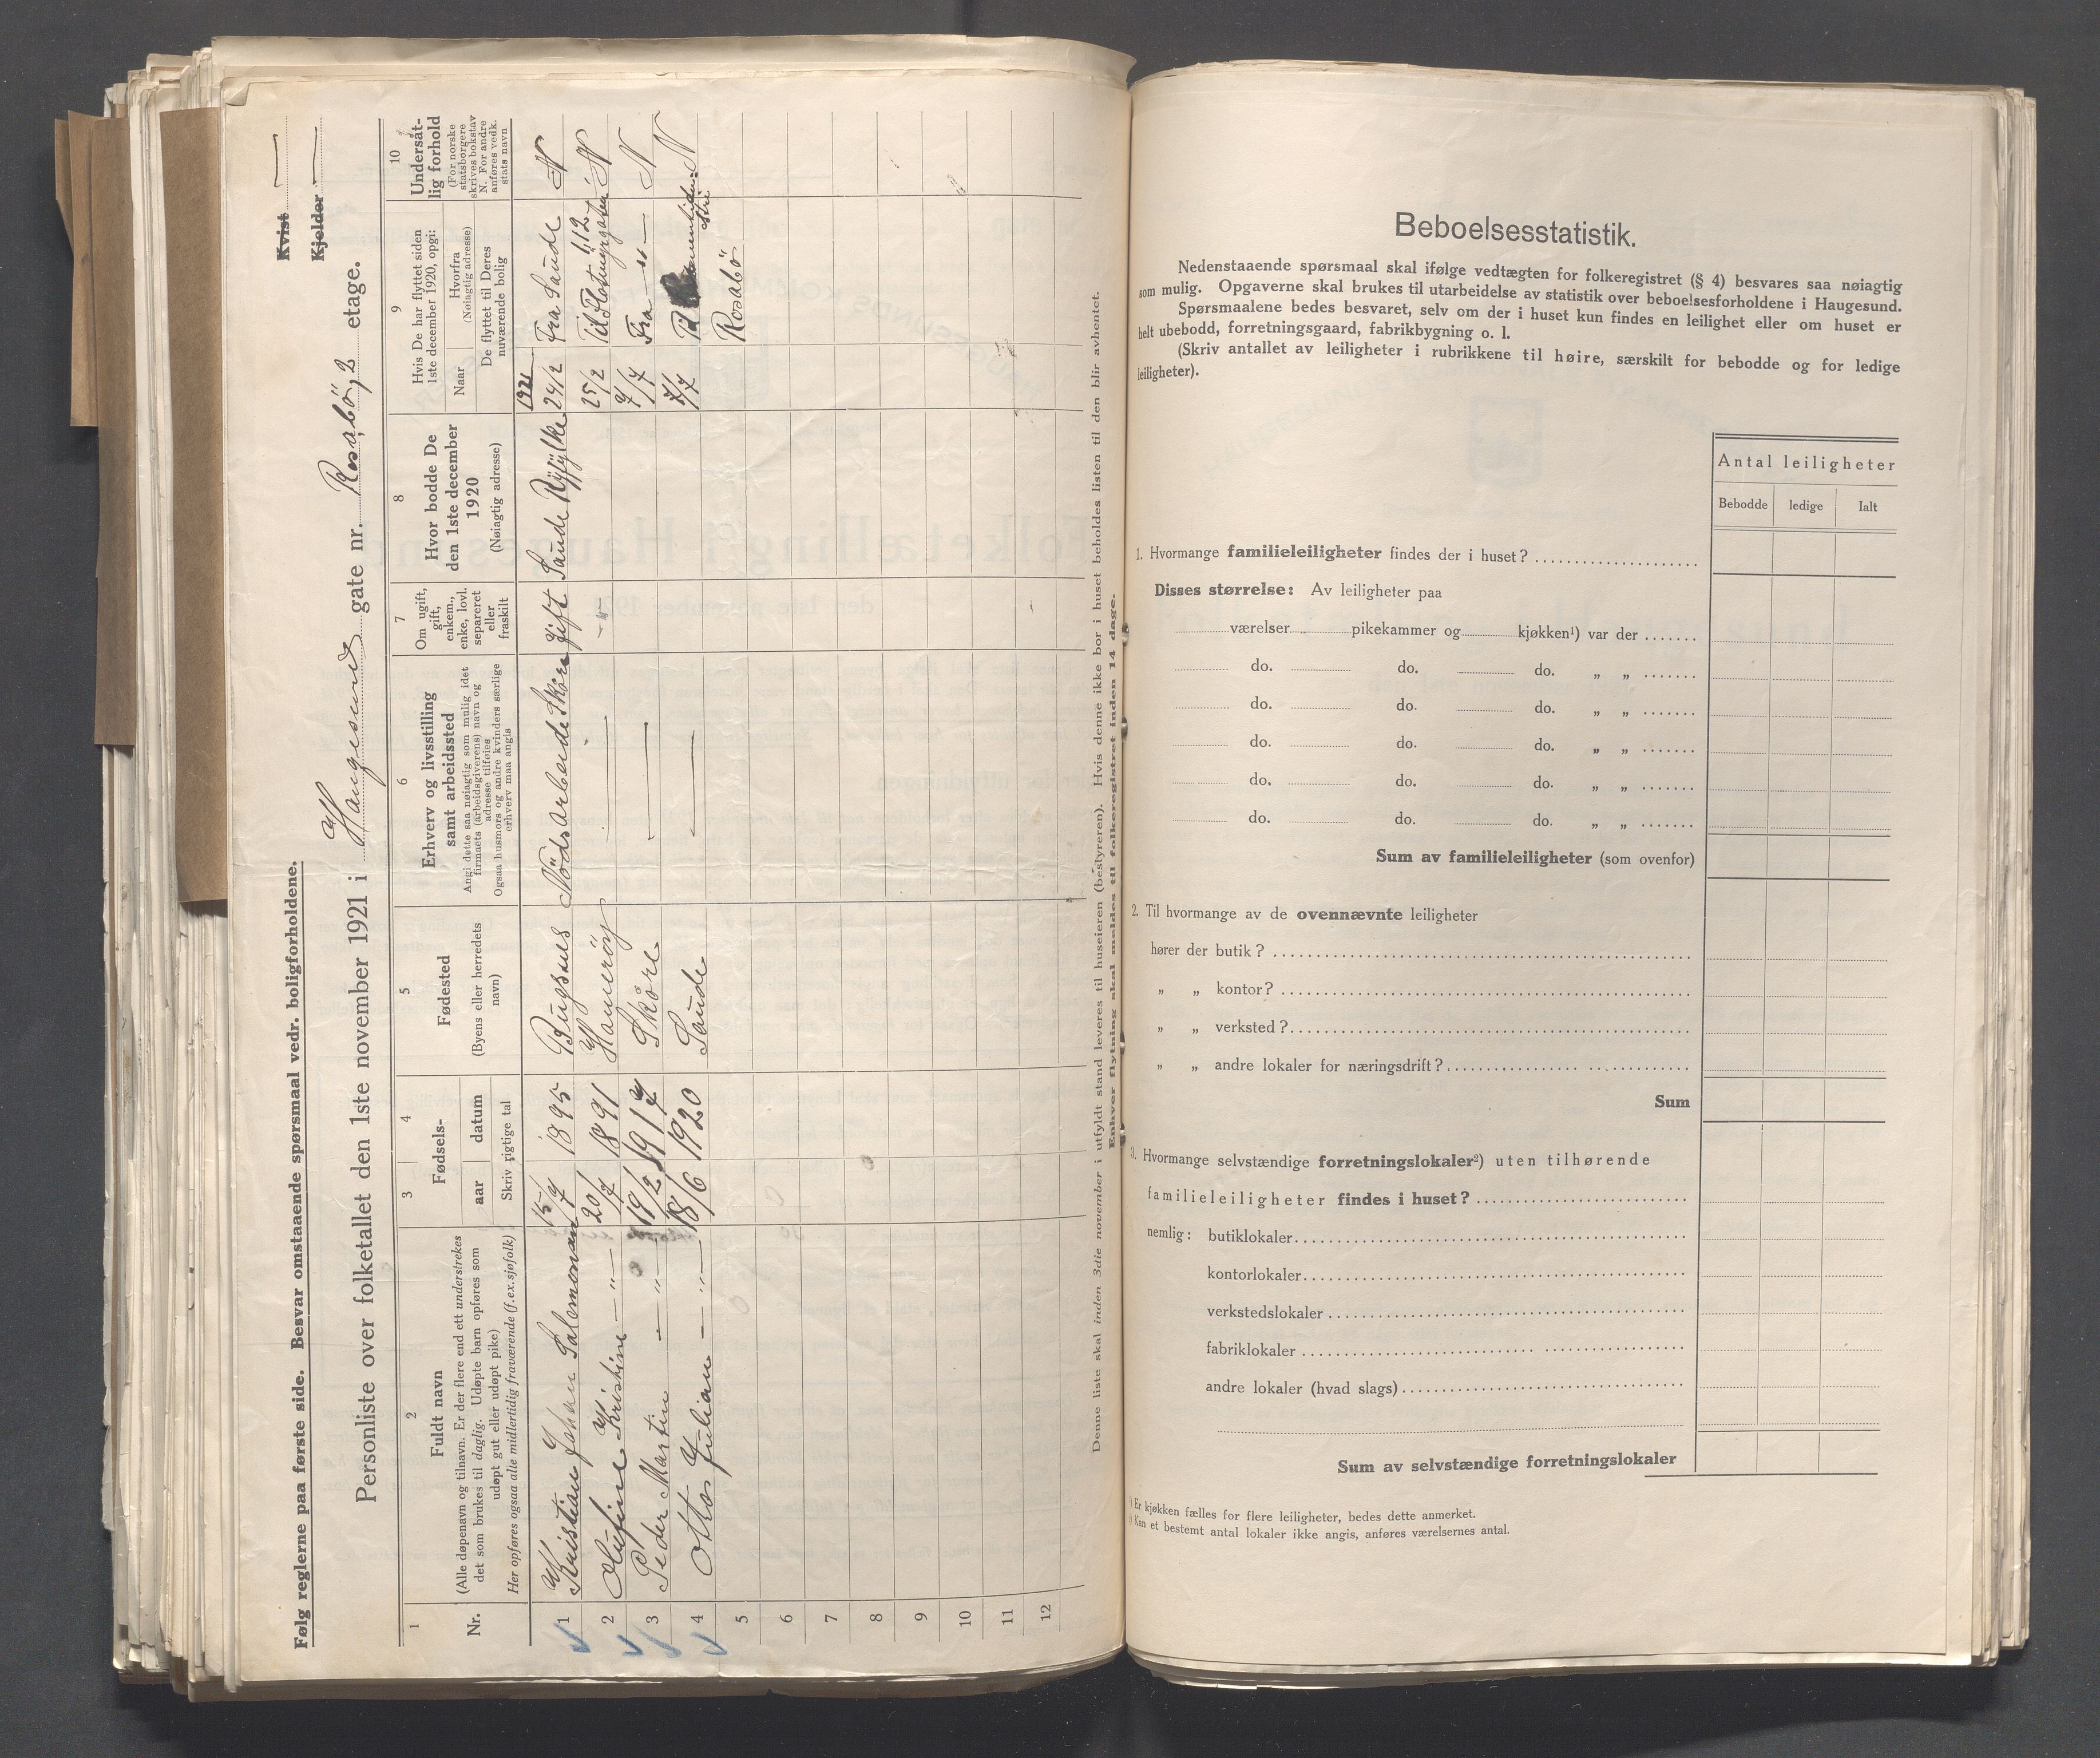 Følg reglerne paa første side. Besvar omstaaende spørsmaal vedr. boligforholdene.
Kvist
Kjelder
Personliste over folketallet den 1ste november 1921 i Haugesund gate nr. Rosabö, 2 etage.
1
Nr.
2
Fuldt navn
(Alle døpenavn og tilnavn. Er der flere end ett understrekes
det som brukes til daglig. Udøpte barn opføres som
udøpt gut eller udøpt pike)
Her opføres ogsaa alle midlertidig fraværende (f.ex.sjøfolk)
3 4
Fødsels-
aar datum
Skriv rigtige tal
5
Fødested
(Byens eller herredets
navn)
6
Erhverv og livsstilling
samt arbeidssted
Angi dette saa nøiagtig som mulig idet
firmaets (arbeidsgiverens) navn og
adresse tilføies
Ogsaa husmors og andre kvinders særlige
erhverv maa angis
7
Om ugift,
gift,
enkem.,
enke, lovl.
separeret
eller
fraskilt
8
Hvor bodde De
den 1ste december
1920
(Nøiagtig adresse)
9
Hvis De har flyttet siden
1ste december 1920, opgi:
Naar
Hvorfra
(Nøiagtig adresse)
De flyttet til Deres
nuværende bolig
10
Undersåt-
lig forhold
(For norske
statsborgere
skrives bokstav
N. For andre
anføres vedk.
stats navn
1921
1 Kristian Johan Salomonsen 15/4 1895 Bugsnes Nödsarbeide Skåre gift Sande Ryfylke 24/2 Fra Sande N
2 Olufine Kristine — " — 20/7 1891 Hameröy — " 25/2 Til Flotmyrgaten 112 N
3 Peder Martin — " — 19/2 1917 Skåre — 7/7 Fra — " — N
4 Otto Julian — " — 18/6 1920 Sande — 7/7 N
Rosabö
5
6
7
8
9
10
11
12
Denne liste skal inden 3die november i utfyldt stand leveres til huseieren (bestyreren). Hvis denne ikke bor i huset beholdes listen til den blir avhentet.
Enhver flytning skal meldes til folkeregistret inden 14 dage.
Beboelsesstatistik.
Nedenstaaende spørsmaal skal ifølge vedtægten for folkeregistret (§ 4) besvares saa nøiagtig
som mulig. Opgaverne skal brukes til utarbeidelse av statistik over beboelsesforholdene i Haugesund.
Spørsmaalene bedes besvaret, selv om der i huset kun findes en leilighet eller om huset er
helt ubebodd, forretningsgaard, fabrikbygning o. l.
(Skriv antallet av leiligheter i rubrikkene til høire, særskilt for bebodde og for ledige
leiligheter).
Antal leiligheter
Bebodde ledige Ialt
1. Hvormange familieleiligheter findes der i huset?
Disses størrelse: Av leiligheter paa
værelser pikekammer og kjøkken¹) var der
do. do. do. „ „
do. do. do. „ „
do. do. do. „ „
do. do. do. „ „
do. do. do. „ „
Sum av familieleiligheter (som ovenfor)
2. Til hvormange av de ovennævnte leiligheter
hører der butik?
„ „ kontor?
„ „ verksted?
„ „ andre lokaler for næringsdrift?
Sum
3. Hvormange selvstændige forretningslokaler²) uten tilhørende
familieleiligheter findes i huset?
nemlig: butiklokaler
kontorlokaler
verkstedslokaler
fabriklokaler
andre lokaler (hvad slags)
Sum av selvstændige forretningslokaler
¹) Er kjøkken fælles for flere leiligheter, bedes dette anmerket.
²) Kan et bestemt antal lokaler ikke angis, anføres værelsernes antal.